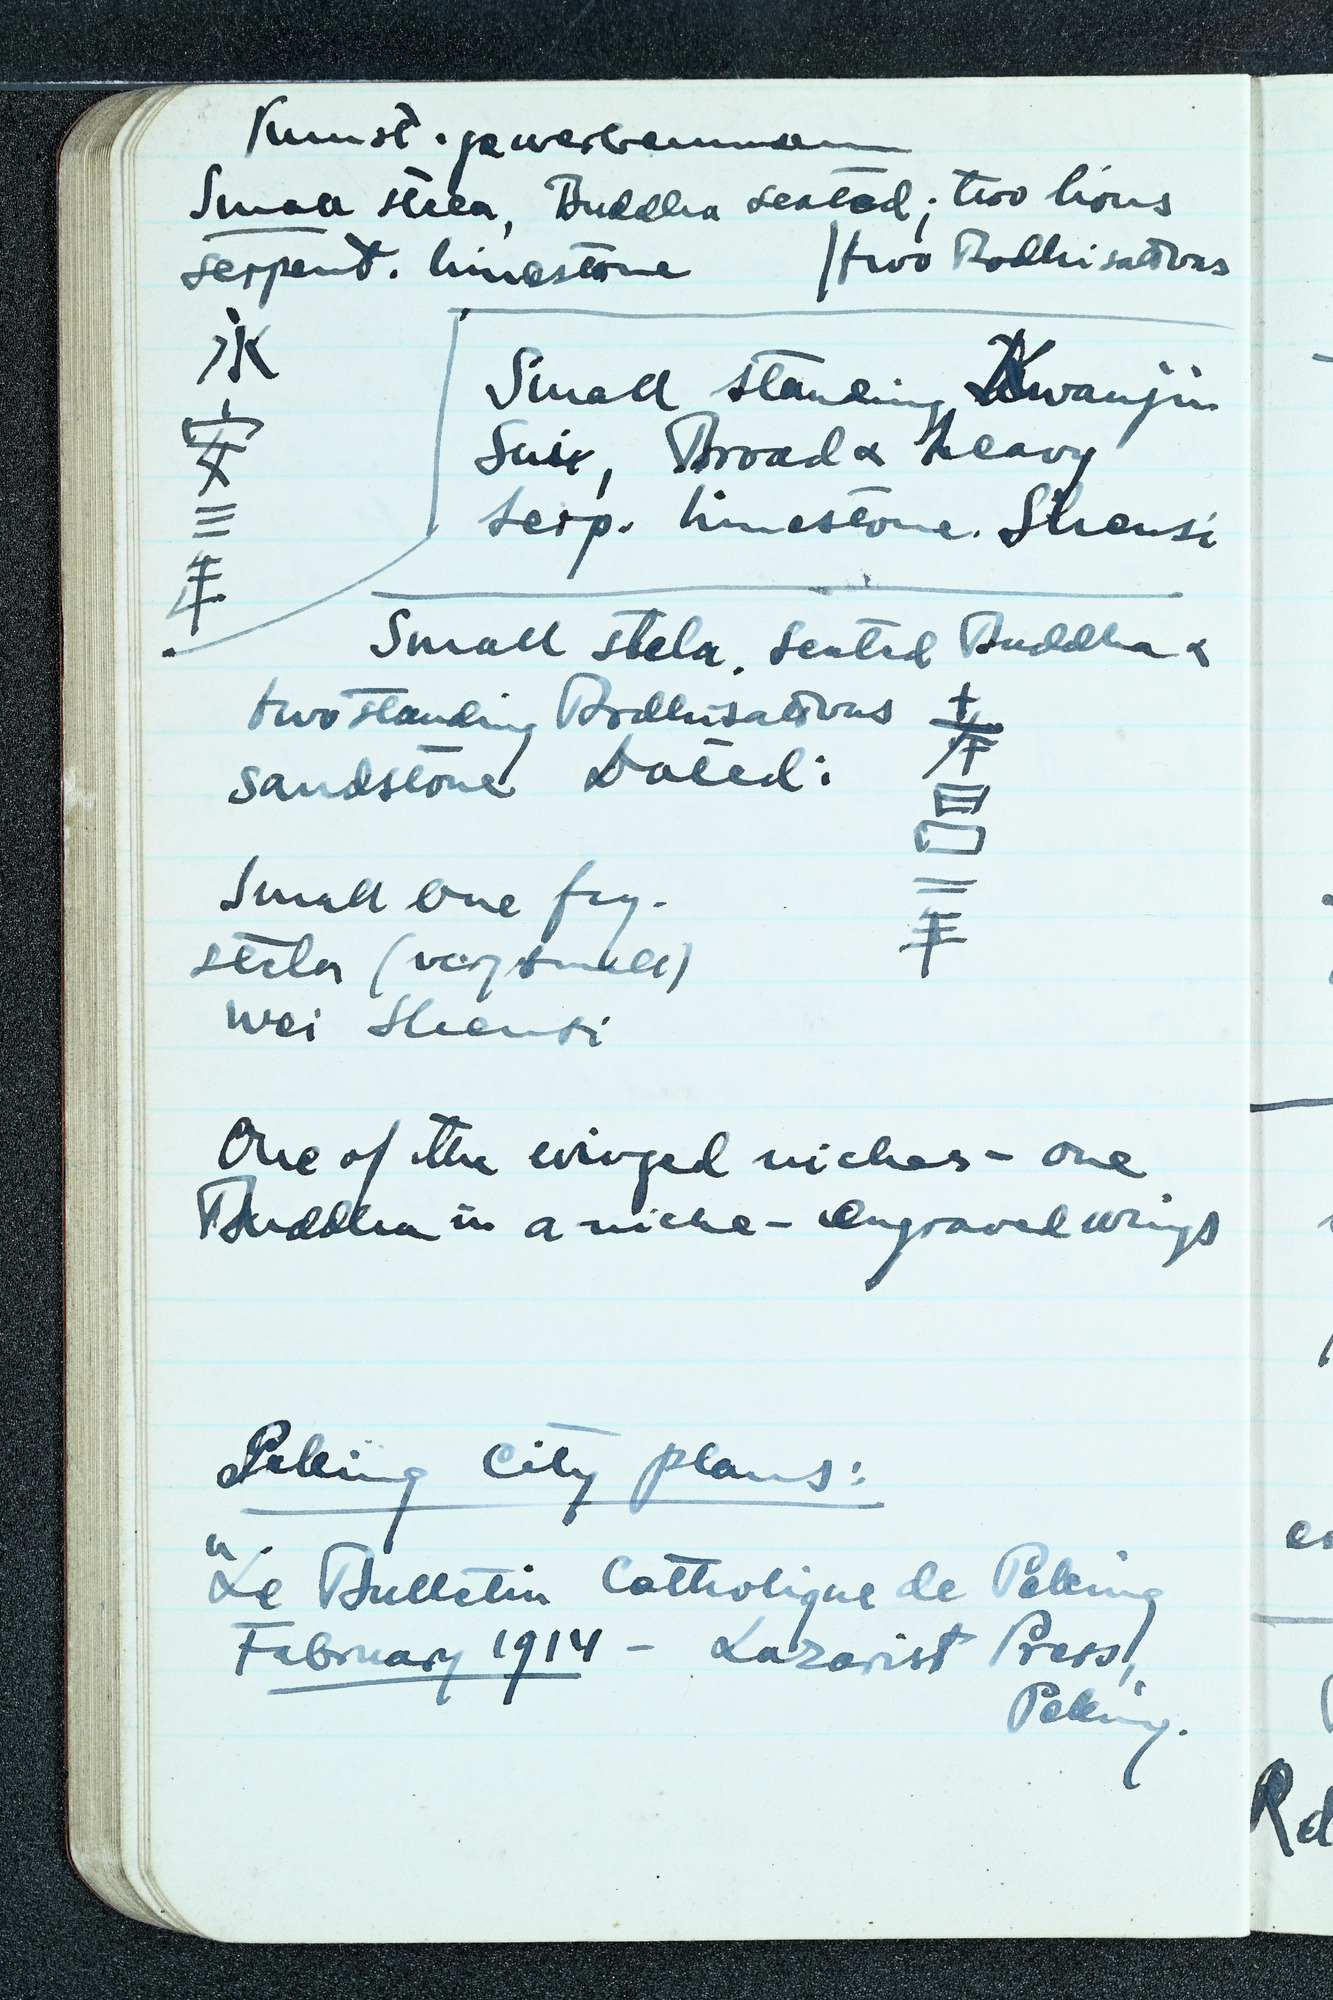 Kunst-gewerbemuseum
Small stela, Buddha seated; two lions
serpent. limestone /two Bodhisattvas
永
安
三
年
Small standing Kwanyin
Sui, Broad & heavy
serp. limestone. Shensi
Small stela. Seated Buddha &
two standing Bodhisattvas
sandstone Dated:
年
Small one fig.
stela (very small)
Wei Shensi
One of the winged niches - one
Buddha in a niche - engraved wings
Peking City plans:
"Le Bulletin Catholique de Peking
February 1914 - Lazarist Press,
Peking.